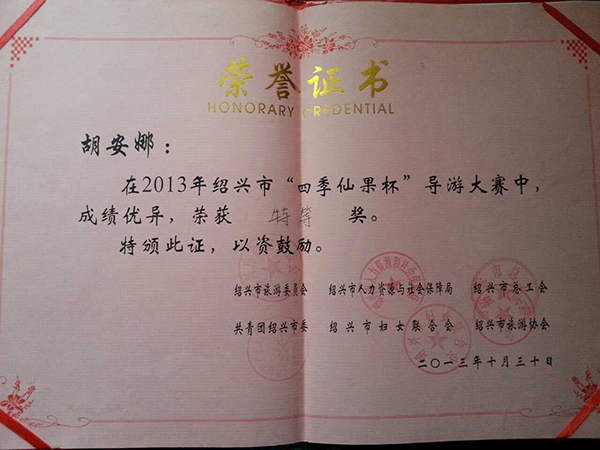 荣誉证书
HONORARY CREDENTIAL
胡安娜：
在2013年绍兴市“四季仙果杯”导游大赛中，
成绩优异，荣获 特等 奖。
特颁此证，以资鼓励。
绍兴市旅游委员会 绍兴市人力资源与社会保障局 绍兴市总工会
共青团绍兴市委 绍兴市妇女联合会 绍兴市旅游协会
二〇一三年十月三十日